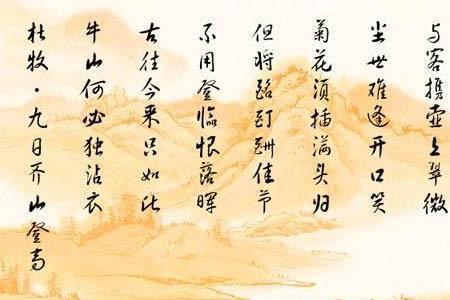 与客携壶上翠微
尘世难逢开口笑
菊花须插满头归
但将酩酊酬佳节
不用登临恨落晖
古往今来只如此
牛山何必独沾衣
杜牧·九日齐山登高